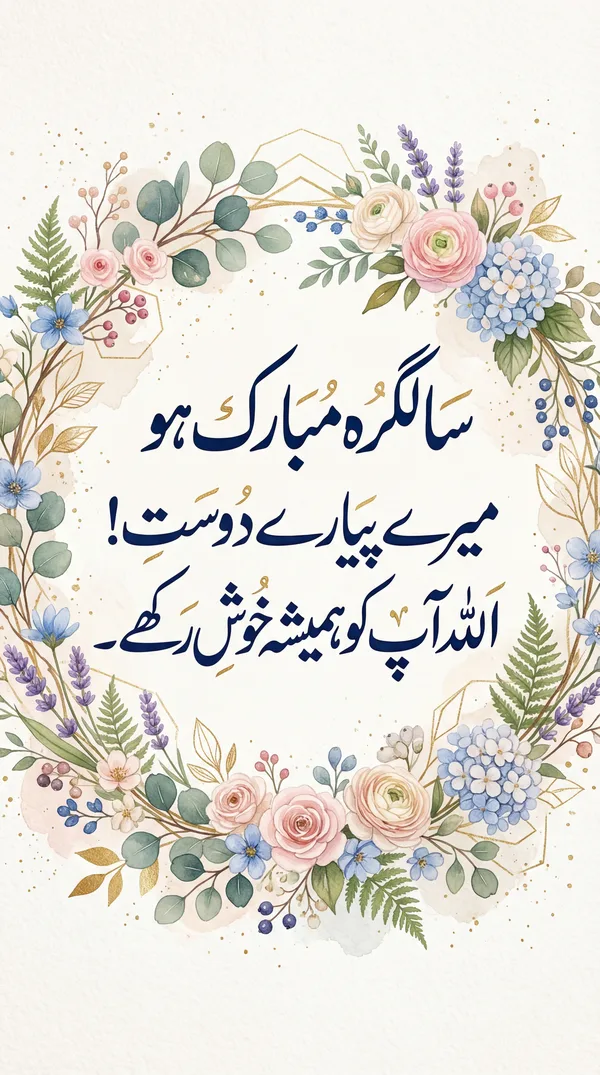 سالگرہ مُبَارک ہو
میرے پیَارے دُوسَتِ!
اَللہ آپ کو ہمیشہ خُوشِ رَکھے۔